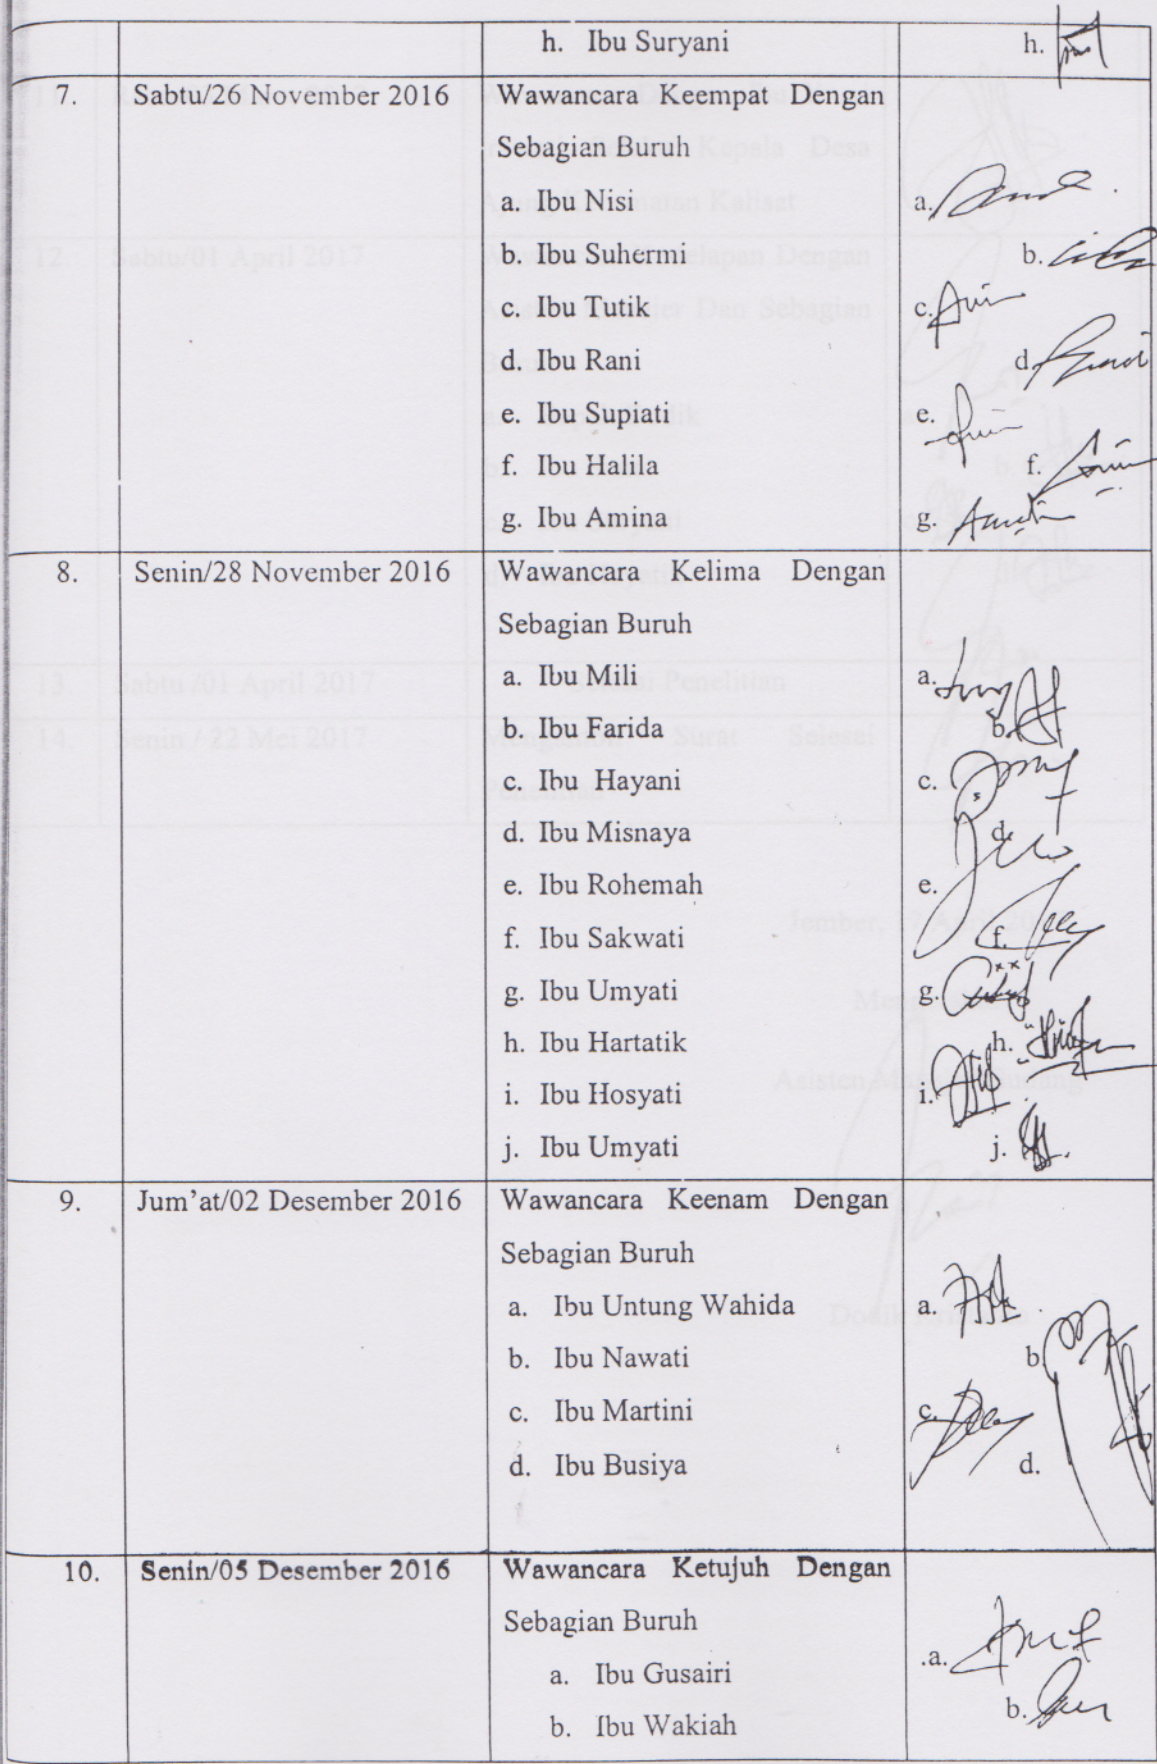 h. Ibu Suryani h.
7. Sabtu/26 November 2016 Wawancara Keempat Dengan
Sebagian Buruh
a. Ibu Nisi a.
b. Ibu Suhermi b.
c. Ibu Tutik c.
d. Ibu Rani d.
e. Ibu Supiati e.
f. Ibu Halila f.
g. Ibu Amina g.
8. Senin/28 November 2016 Wawancara Kelima Dengan
Sebagian Buruh
a. Ibu Mili a.
b. Ibu Farida b.
c. Ibu Hayani c.
d. Ibu Misnaya d.
e. Ibu Rohemah e.
f. Ibu Sakwati f.
g. Ibu Umyati g.
h. Ibu Hartatik h.
i. Ibu Hosyati i.
j. Ibu Umyati j.
9. Jum'at/02 Desember 2016 Wawancara Keenam Dengan
Sebagian Buruh
a. Ibu Untung Wahida a.
b. Ibu Nawati b.
c. Ibu Martini c.
d. Ibu Busiya d.
10. Senin/05 Desember 2016 Wawancara Ketujuh Dengan
Sebagian Buruh
a. Ibu Gusairi .a.
b. Ibu Wakiah b.